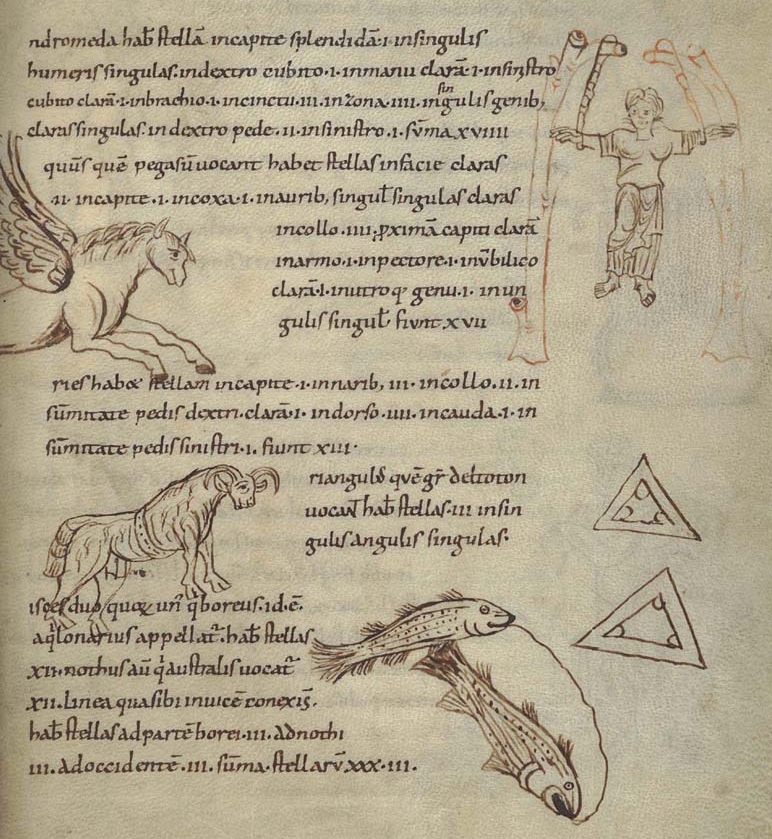 ndromeda hab̄ stellā. incapite splendidā·i· insingulis
humeris singulas. indextro cubito·i·inmanu clarā·i·insinistro
cubito clarā·i·inbrachio·i·incinctu·iii·in zona·iiii·insingulis genib;
claras singulas. in dextro pede·ii·insinistro·i·sūma xviiii
quūs quē pegasū uocant habet stellas infacie claras
ii·incapite·i·incoxa·i·inaurib; singul̄ singulas claras
incollo·iiii·ꝓximā capiti clarā
inarmo·i·inpectore·i·inūbilico
clarā·i·inutroq; genu·i·in un
gulis singul̄ fiunt xvii
ries habet stellam incapite·i·innarib; iii·incollo·ii·in
sūmitate pedis dextri·clarā·i·indorso·iiii·incauda·i·in
sūmitate pedis sinistri·i·fiunt xiii·
riangulū quē gr̄ deltoton
uocant hab̄ stellas·iii insin
gulis angulis singulas·
isces duo quoꝝ un' q̇ boreus·id·ē·
aq̇lonarius appellat̄·hab̄ stellas
xii·nothus aū q̇ australis uocat̄
xii·linea quasi ibi inuicē conexis̄·
hab̄ stellas ad partē borei·iii·ad nothi
iii·ad occidentē·iii·sūma·stellarū xxx·iii·